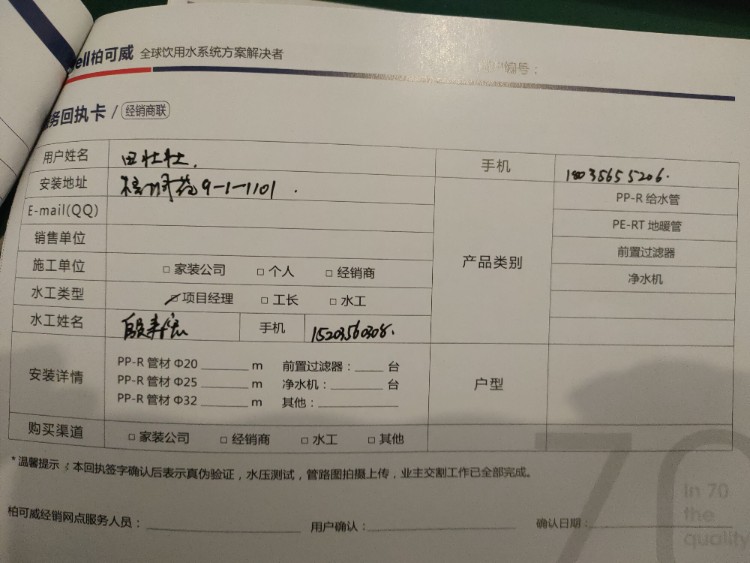 ell柏可威 全球饮用水系统方案解决者
编号：
务回执卡 / 经销商联
用户姓名 田壮壮. 手机 18035655206.
安装地址 9-1-1101. PP-R 给水管
E-mail(QQ) PE-RT 地暖管
销售单位 产品类别 前置过滤器
施工单位 □ 家装公司 □ 个人 □ 经销商 净水机
水工类型 □ 项目经理 □ 工长 □ 水工
水工姓名 手机
PP-R 管材 Φ20 ______ m 前置过滤器：____ 台
安装详情 PP-R 管材 Φ25 ______ m 净水机：______ 台 户型
PP-R 管材 Φ32 ______ m 其他：________
购买渠道 □ 家装公司 □ 经销商 □ 水工 □ 其他
*温馨提示：本回执签字确认后表示真伪验证，水压测试，管路图拍摄上传，业主交割工作已全部完成。
70
In 70
the
quality
柏可威经销网点服务人员：____________ 用户确认：____________ 确认日期：____________